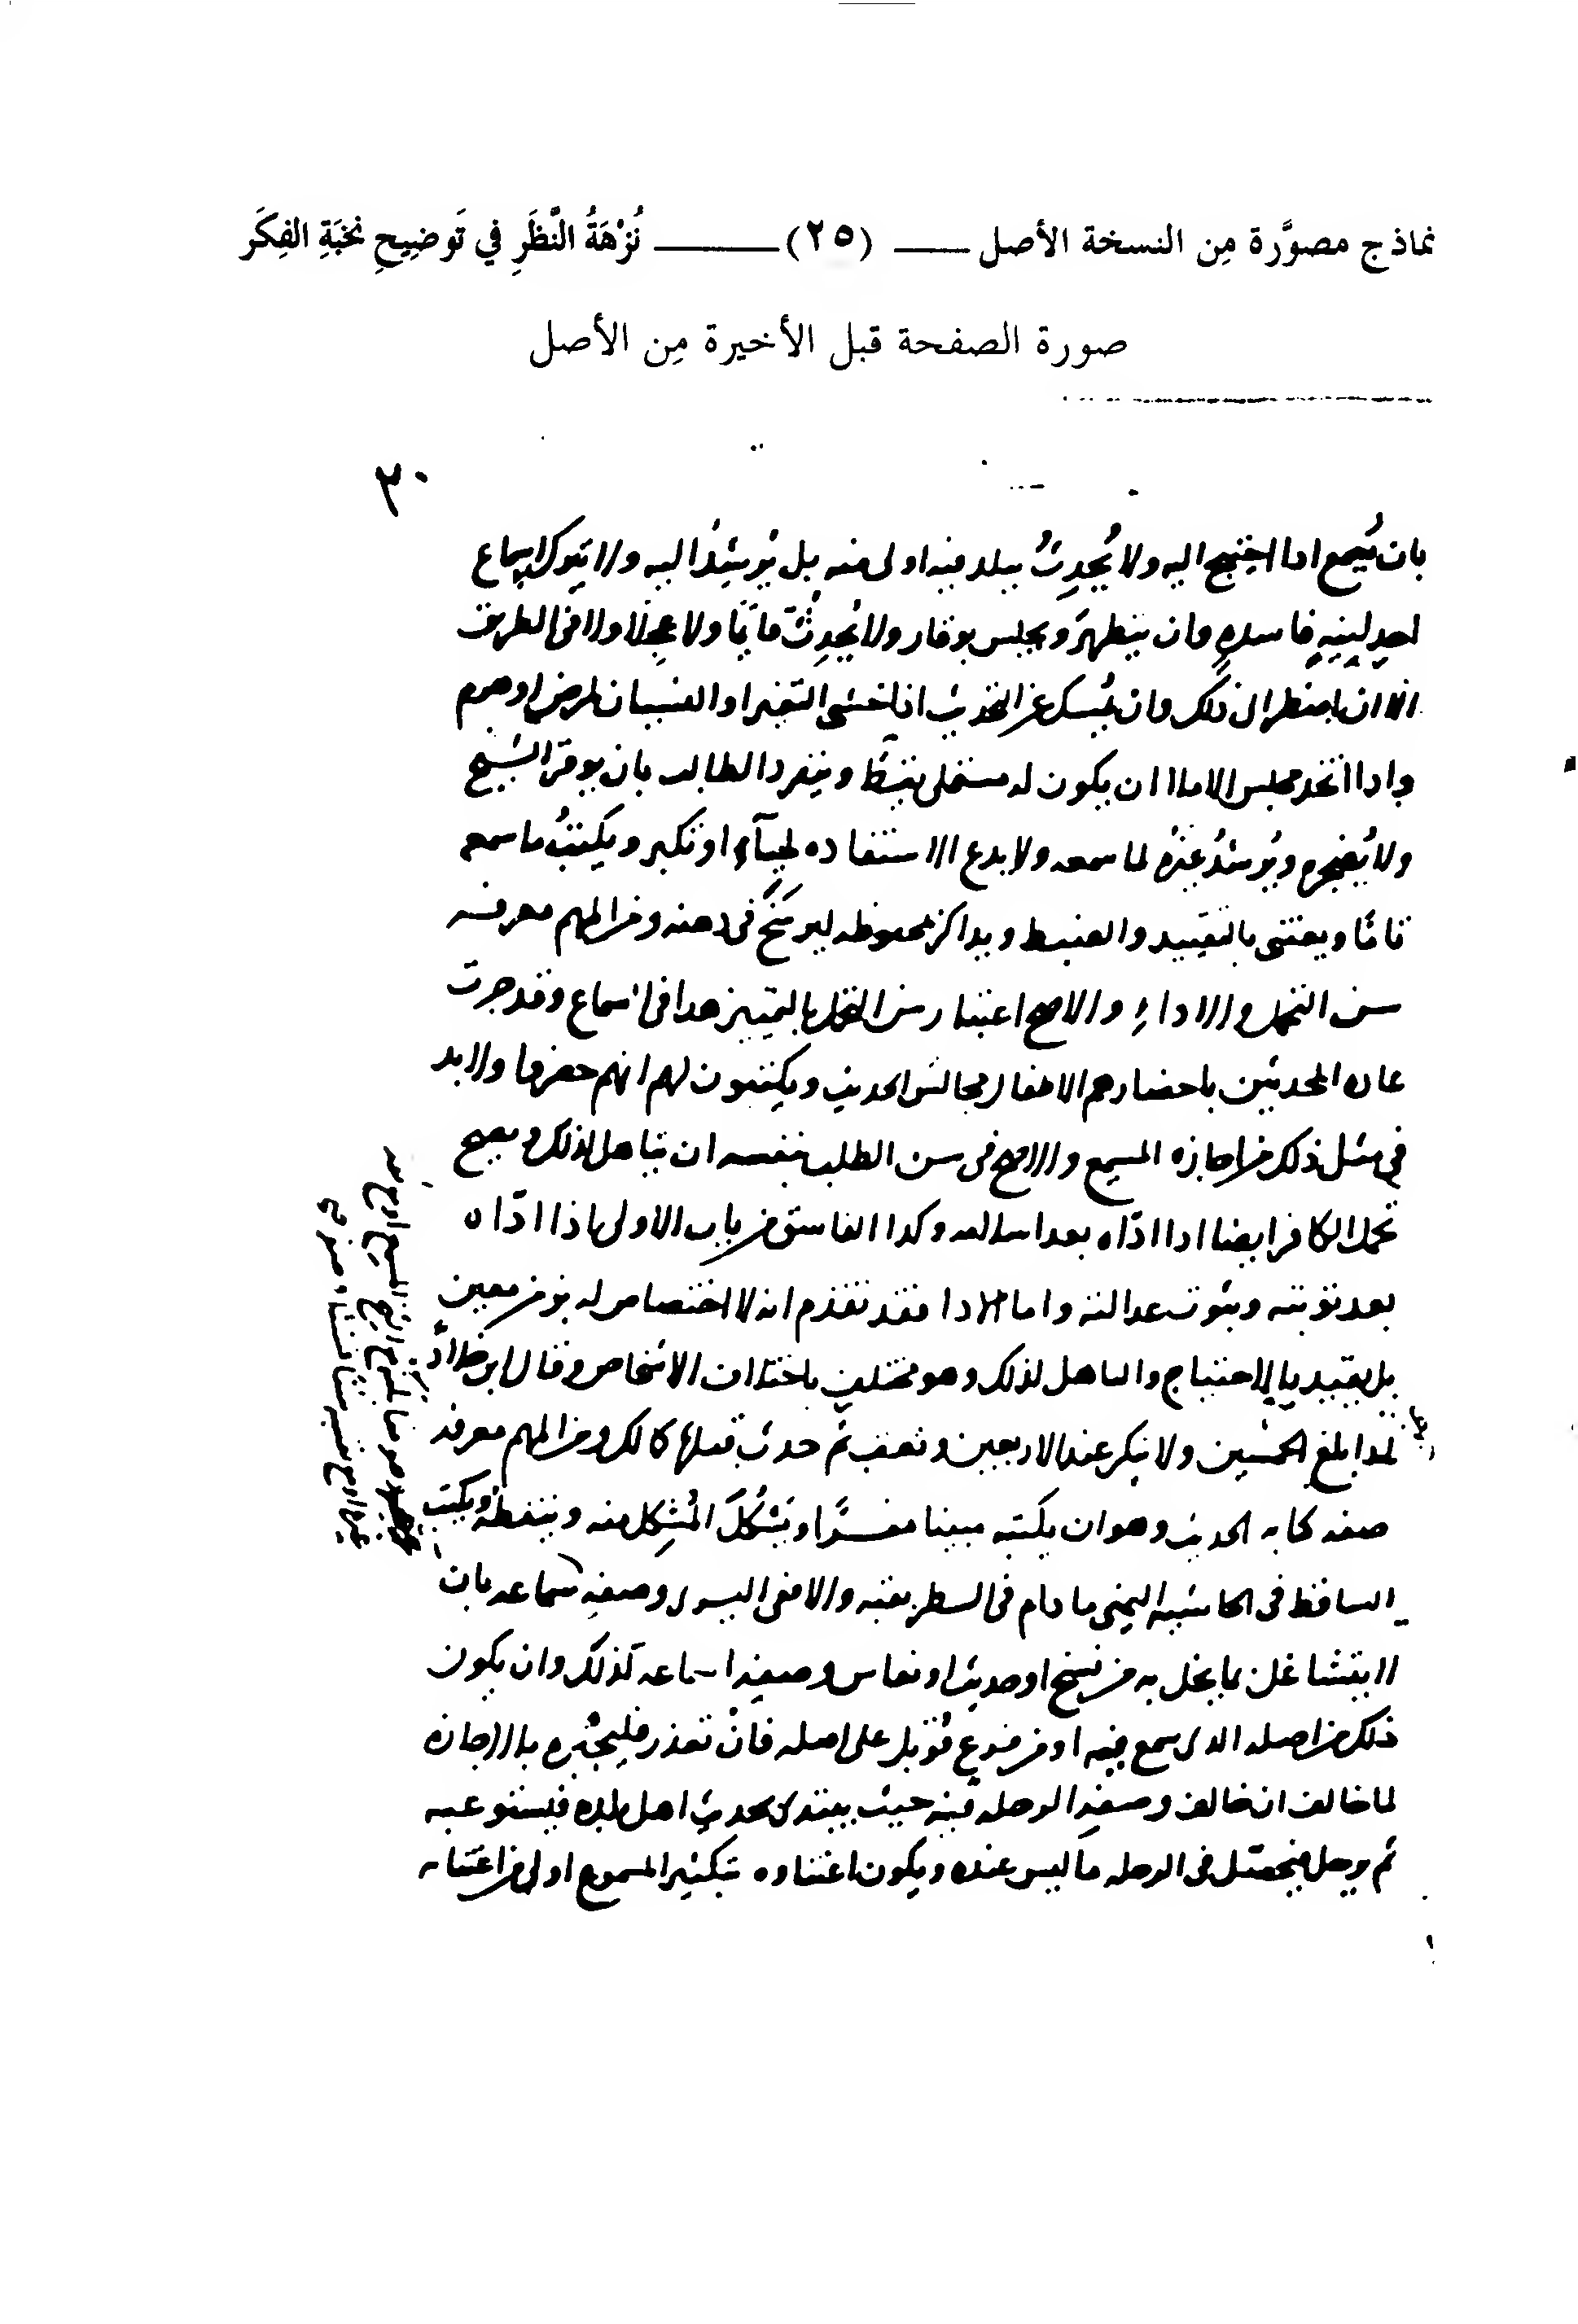 نماذج مصوَّرة مِن النسخة الأصل ـــــ (٢٥) ـــــ نُزْهَةُ النَّظَرِ في تَوضِيحِ نُخبَةِ الفِكَر
صورة الصفحة قبل الأخيرة مِن الأصل
٣٠
بان يُسمع اذا احتيج اليه ولا يُحدِثُ ببلد فيه اولى منه بل يُرشِدُ اليه ولا يترك اسماع
احدٍ لنيةٍ فاسدةٍ وان يتطهرَ ويجلس بوقار ولا يُحدِثُ قائمًا ولا عجِلًا ولا في الطريق
الا ان اضطر الى ذلك وان يُمسك عن التحديث اذا خشي التغير او النسيان لمرض او هرم
واذا اتخذ مجلس الاملا ان يكون له مستملي يقظ وينفرد الطالب بان يوقر الشيخ
ولا يُضجره ويُرشدُ غيرَه لما سمعه ولا يدع الاستفاده لحيآءٍ او تكبر ويكتبُ ما سمعه
تامًّا ويعتني بالتقييد والضبط ويذاكر بمحفوظه ليرسَخَ في ذهنه ومن المهم معرفه
سن التحمل والاداءِ والاصح اعتبار سن التحمل بالتمييز هذا في السماع وقد جرت
عاده المحدثين باحضارهم الاطفال مجالسَ الحديث ويكتبون لهم انهم حضروا ولا بد
في مثل ذلك من اجازه المسمع والاصح في سن الطلب بنفسه ان يتاهل لذلك ويصح
تحمل الكافر ايضا اذا ادّاه بعد اسلامه وكذا الفاسق من باب الاولى اذا ادّاه
بعد توبته وثبوت عدالته واما الادا فقد تقدم انه لا اختصاص له بزمن معين
بل يقيد بالاحتياج والتاهل لذلك وهو مختلف باختلاف الاشخاص وقال ابن خلاد
اذا بلغ الخمسين ولا ينكر عند الاربعين وتعقب بمن حدث قبلها كمالك ومن المهم معرفه
صفه كتابه الحديث وهو ان يكتبه مبينا مفسَّرًا ويَشكُلَ المُشكِل منه وينقطَه ويكتب
الساقط في الحاشيه اليمنى ما دام في السطر بقيه والا ففي اليسرى وصفهِ سماعه بان
لا يتشاغل بما يخل به من نسخ او حديث او نعاس وصفهِ اسماعه كذلك وان يكون
ذلك من اصله الذي سمع فيه او من فرعٍ قُوبل على اصله فانْ تعذر فليجبُره بالاجازه
لما خالف ان خالف وصفهِ الرحله فيه حيث يبتدئ بحديث اهل بلده فيستوعبه
ثم يرحل فيحصّل في الرحله ما ليس عنده ويكون اعتناوه بتكثير المسموع اولى من اعتنائه